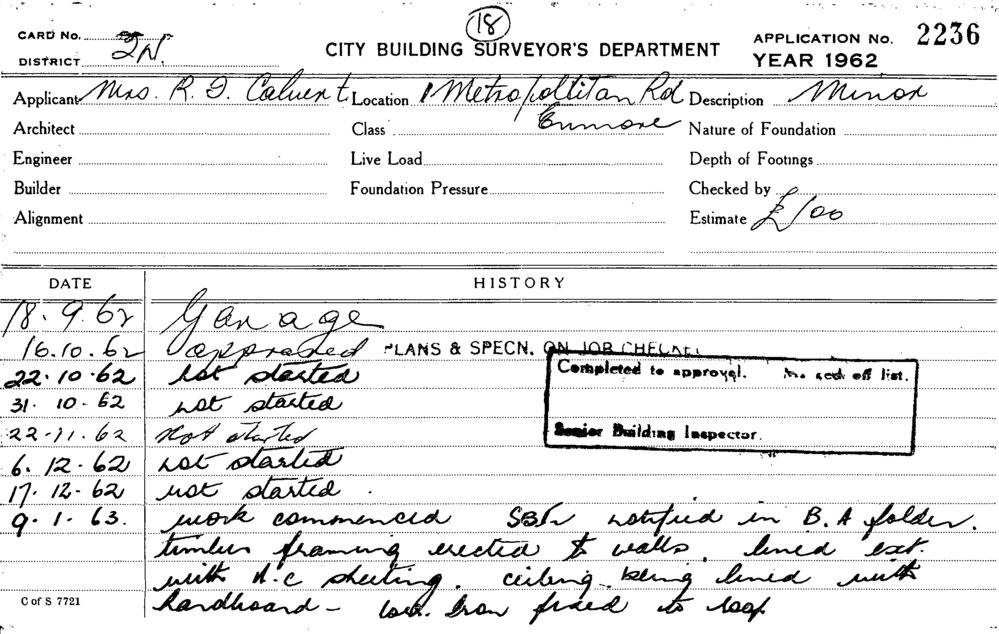 18
CARD No.
DISTRICT 2N.
CITY BUILDING SURVEYOR'S DEPARTMENT
APPLICATION No. 2236
YEAR 1962
Applicant Mrs. R. J. Calvert Location 1 Metropoltitan Rd Description Minor
Architect Class Enmore Nature of Foundation
Engineer Live Load Depth of Footings
Builder Foundation Pressure Checked by
Alignment Estimate £100
DATE HISTORY
18.9.62 Garage
16.10.62 approved PLANS & SPECN. ON JOB CHECKED
22.10.62 not started
Completed to approval. off list.
31.10.62 not started
22.11.62 Not started
Senior Building Inspector.
6.12.62 not started
17.12.62 not started.
9.1.63. work commenced SBI notified in B.A folder.
timber framing erected to walls. lined ext.
with A.C sheeting. ceiling being lined with
C of S 7721
hardboard - iron fixed to roof